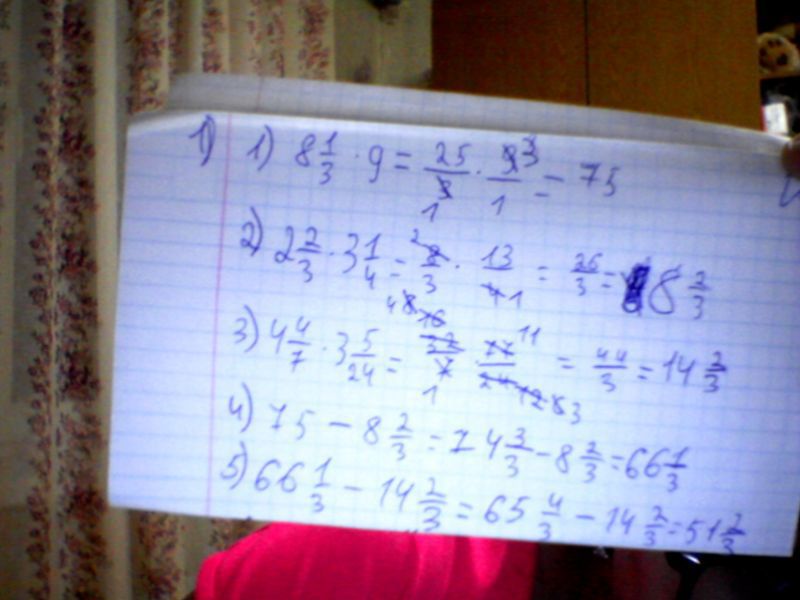 1) 1) 8 1/3 · 9 = 25/3 1 · 9 3/1 = 75
2) 2 2/3 · 3 1/4 = 2 8/3 · 13/4 1 = 26/3 = 8 2/3
3) 4 4/7 · 3 5/24 = 4 8 16 32/7 1 · 77 11/24 12 6 3 = 44/3 = 14 2/3
4) 75 - 8 2/3 = 74 3/3 - 8 2/3 = 66 1/3
5) 66 1/3 - 14 2/3 = 65 4/3 - 14 2/3 = 51 2/3